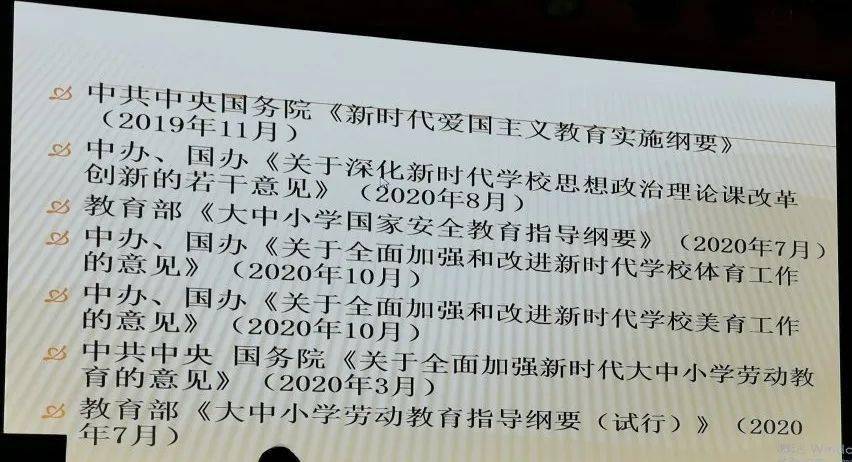 中共中央国务院《新时代爱国主义教育实施纲要》
（2019年11月）
中办、国办《关于深化新时代学校思想政治理论课改革
创新的若干意见》（2020年8月）
教育部《大中小学国家安全教育指导纲要》（2020年7月）
中办、国办《关于全面加强和改进新时代学校体育工作
的意见》（2020年10月）
中办、国办《关于全面加强和改进新时代学校美育工作
的意见》（2020年10月）
中共中央 国务院《关于全面加强新时代大中小学劳动教
育的意见》（2020年3月）
教育部《大中小学劳动教育指导纲要（试行）》（2020
年7月）